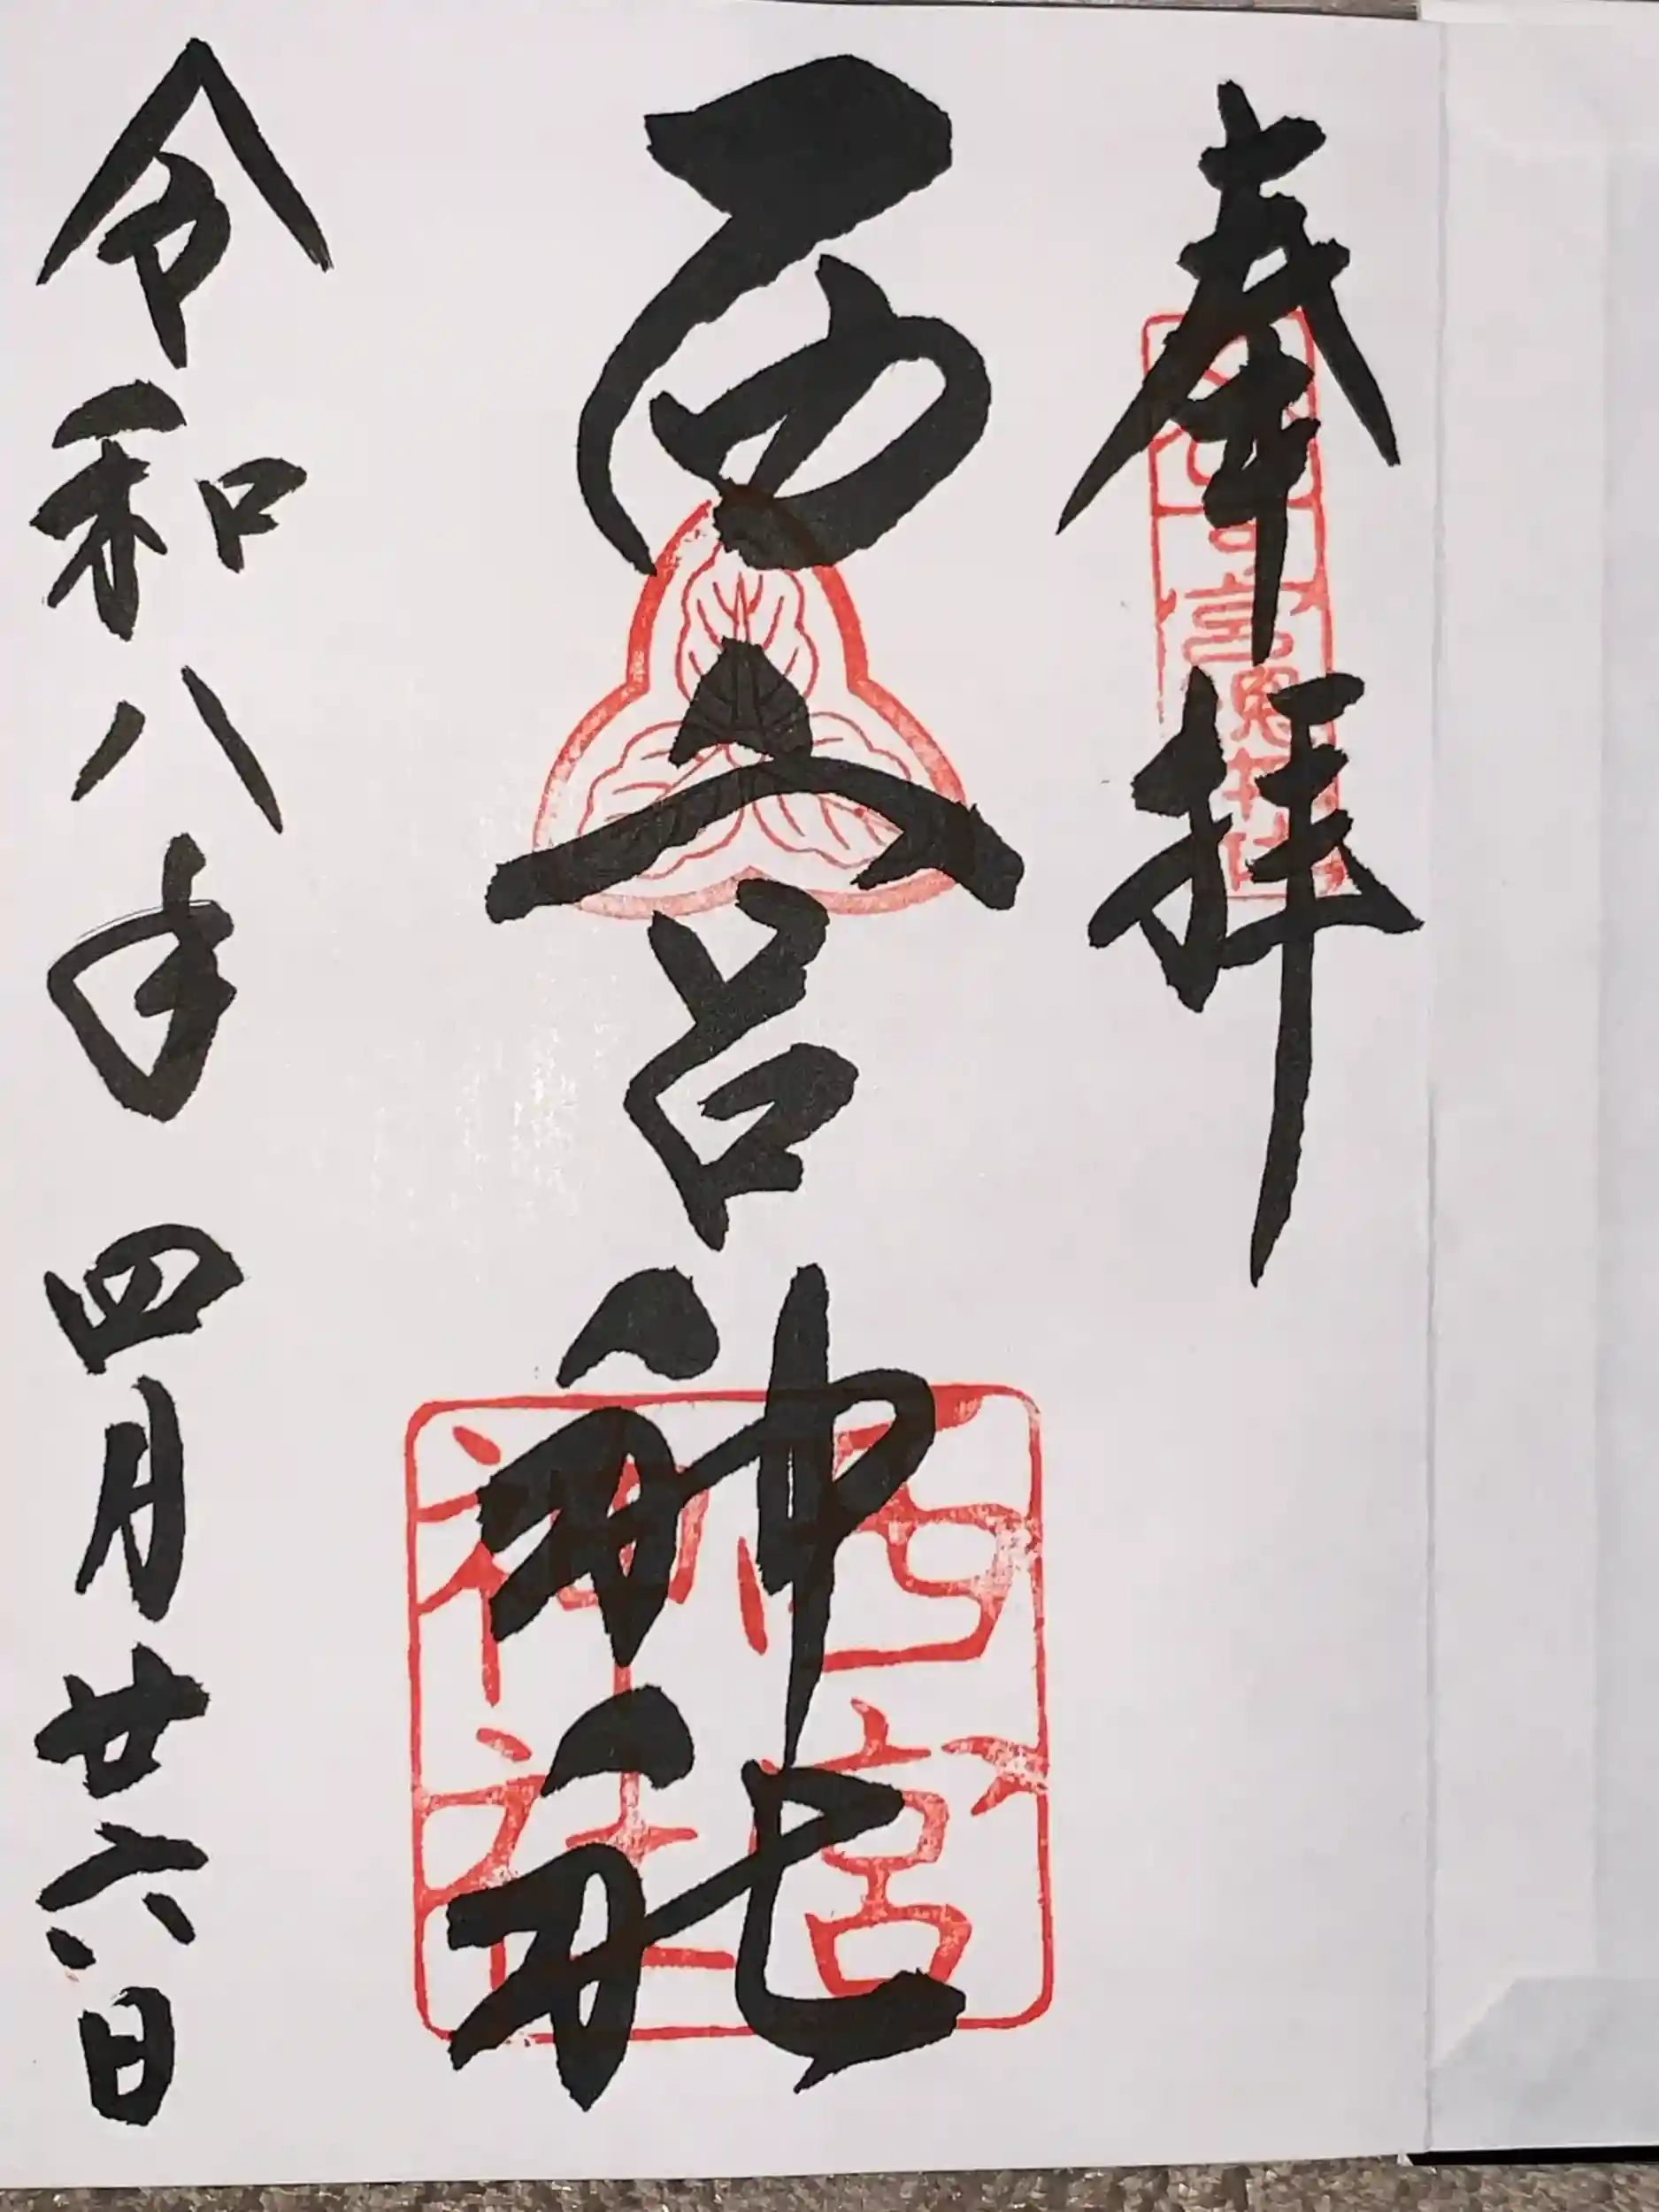 奉拝
西宮神社
令和八年 四月廿六日
西宮
神社